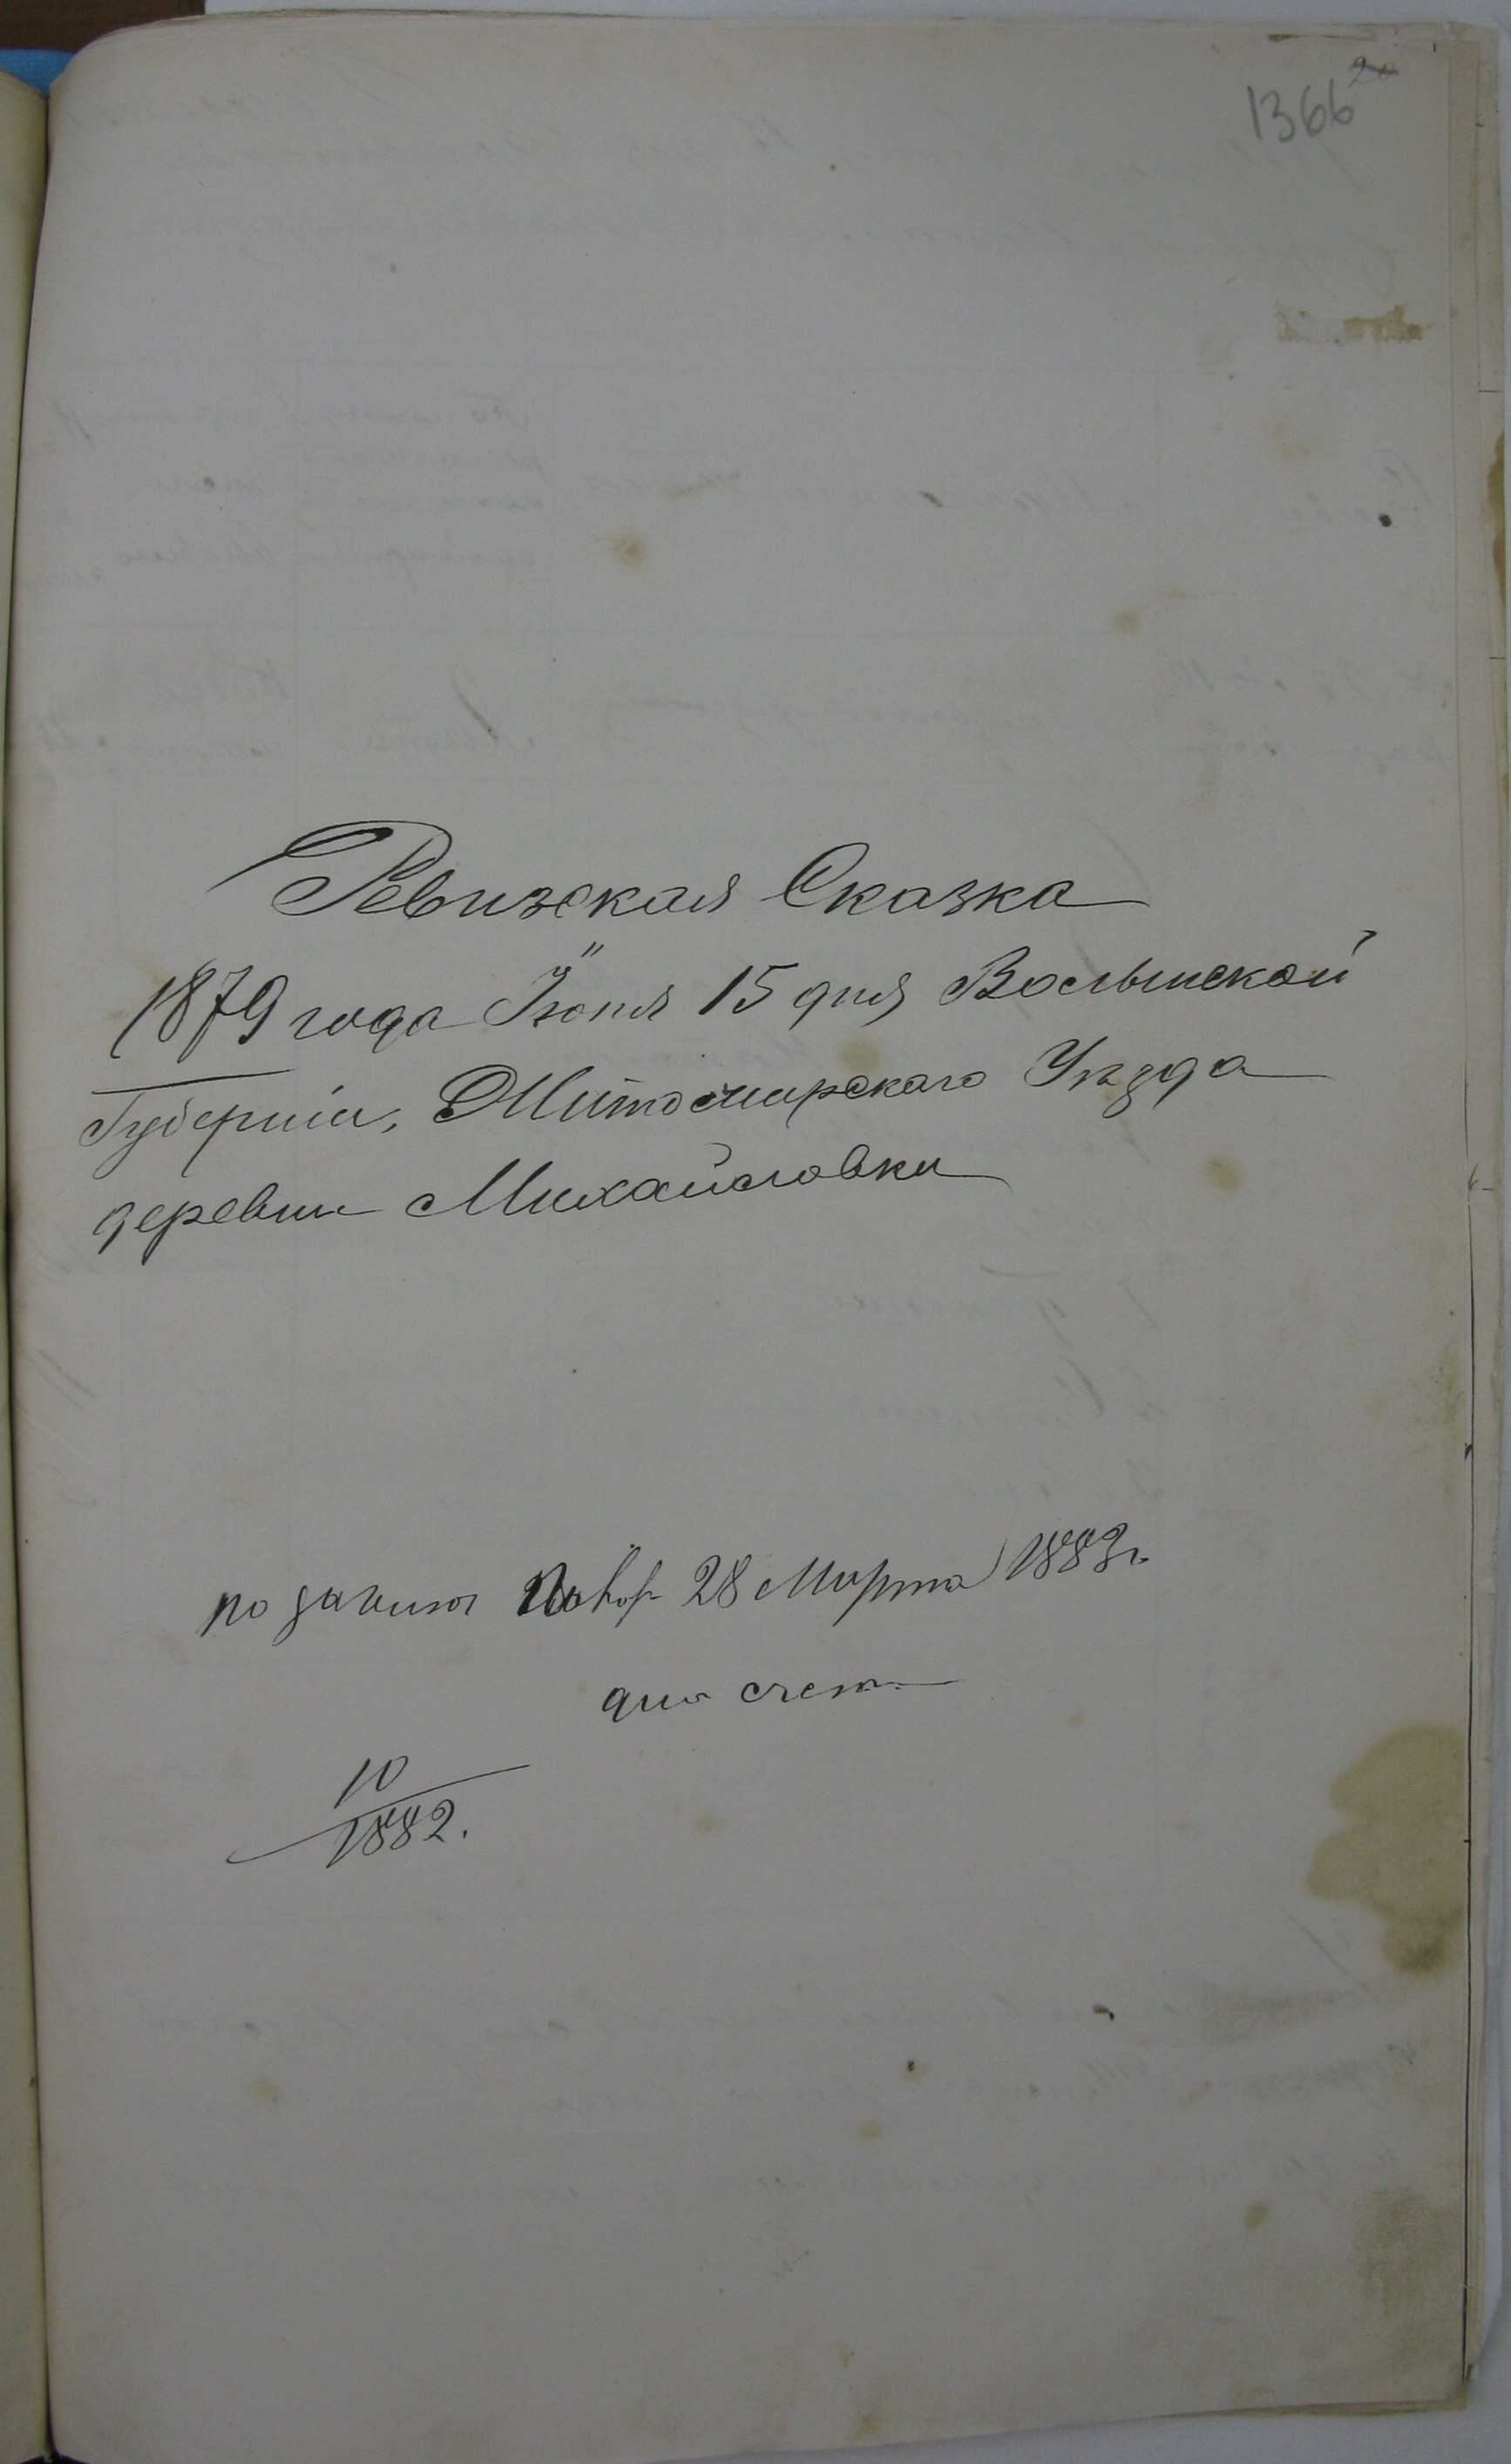 1366
20
Ревизская Сказка
1879 года Іюня 15 дня Волынской
Губерніи, Житомирскаго Уѣзда
деревни Михайловки
по записи 28 Марта 1883 г.
счет
10
1882.